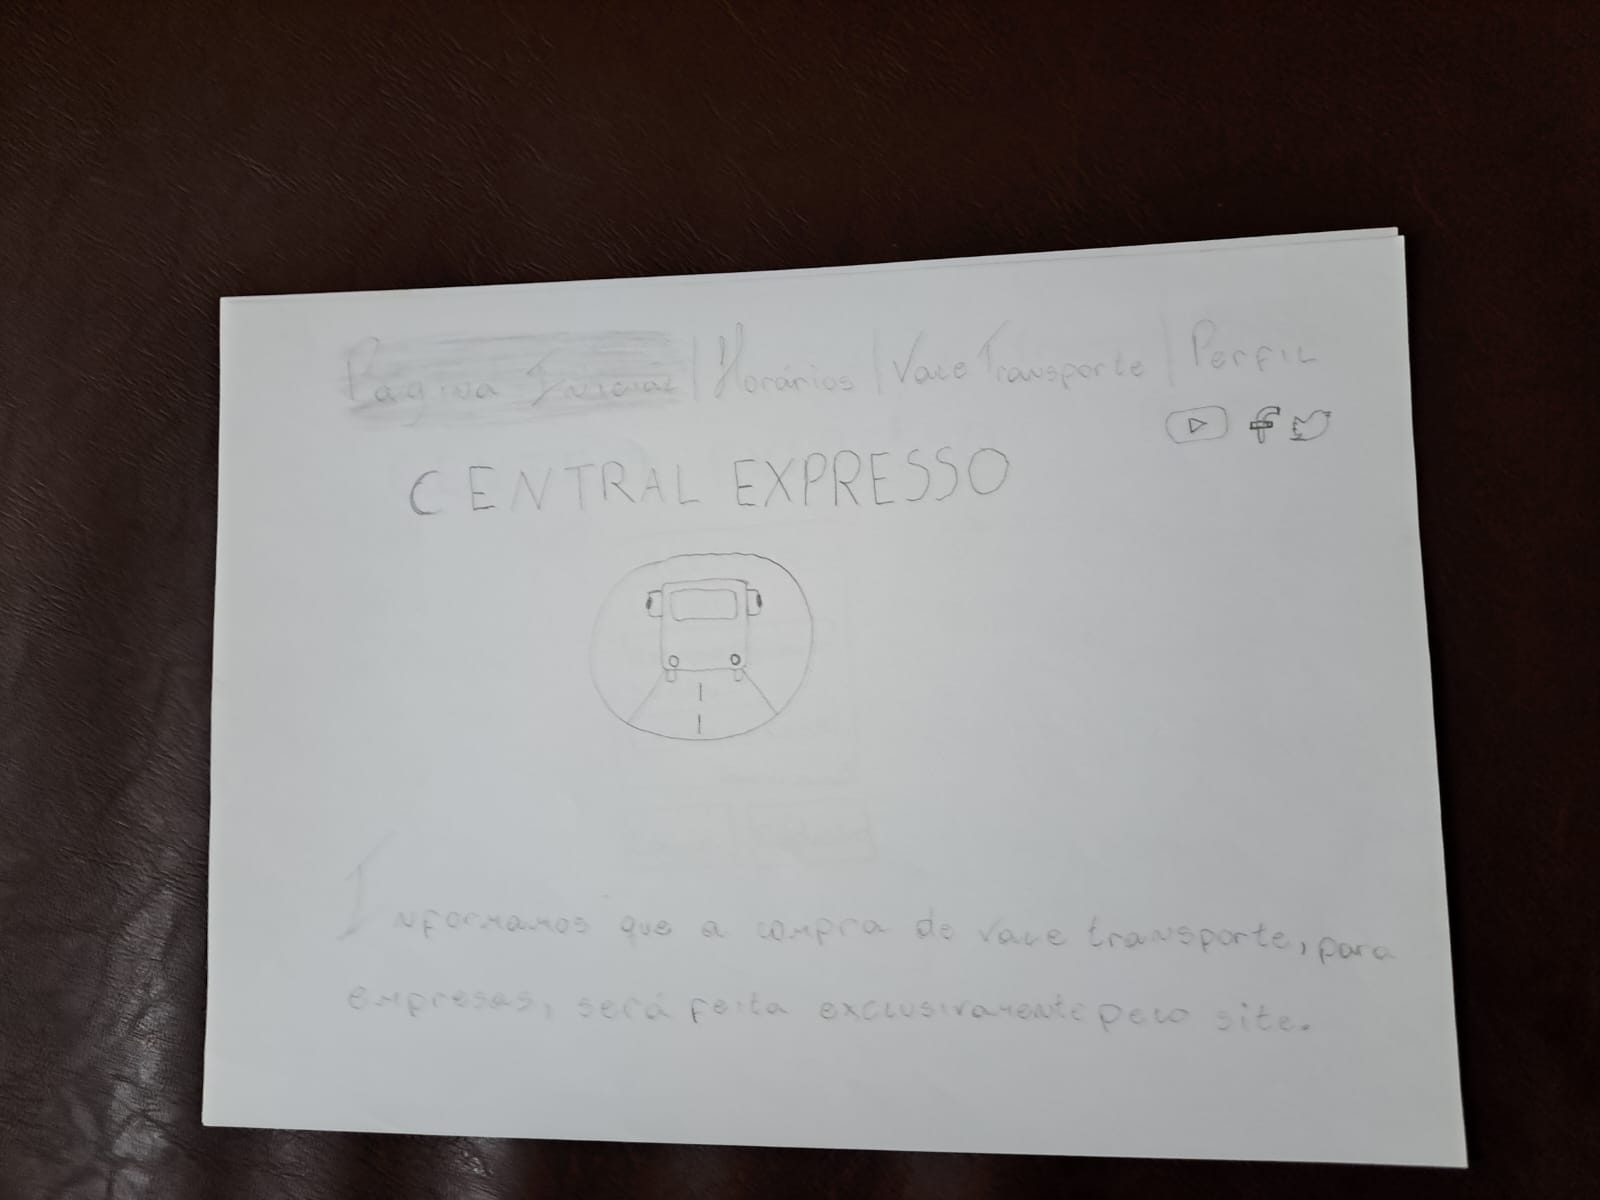 Página Inicial | Horários | Vale Transporte | Perfil
CENTRAL EXPRESSO
Informamos que a compra de vale transporte, para
empresas, será feita exclusivamente pelo site.